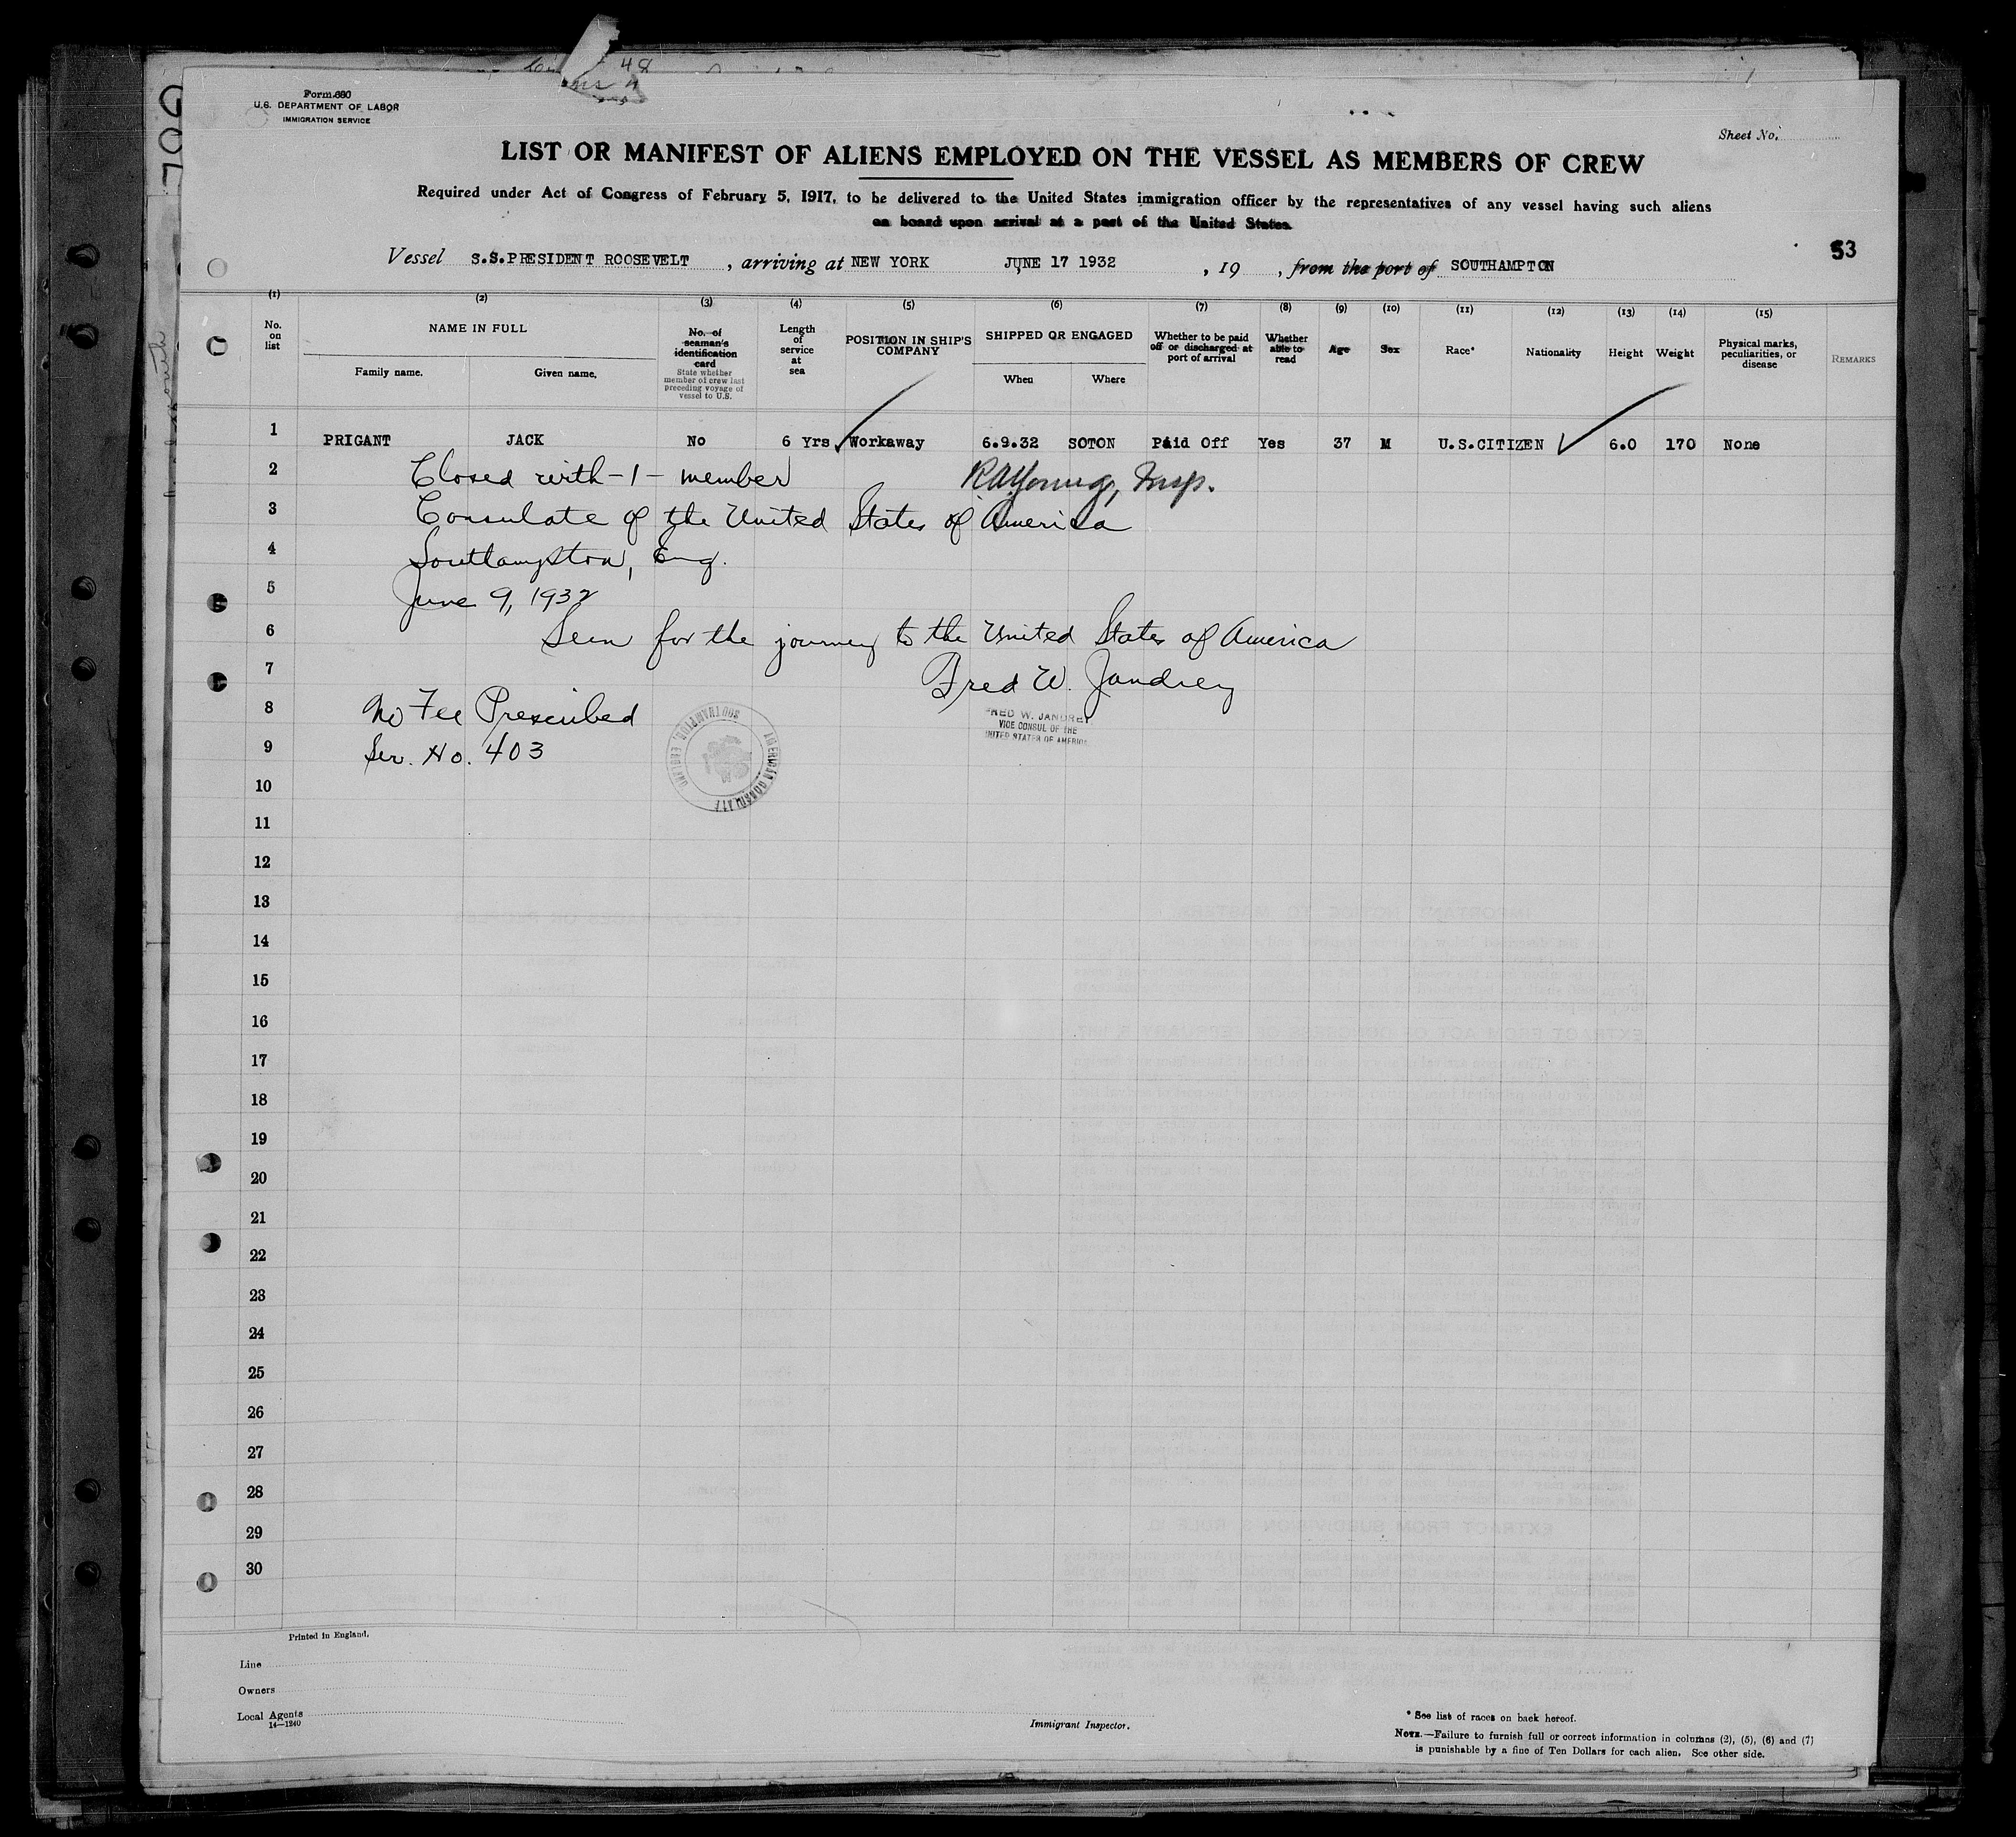 48
Form 680
U.S. DEPARTMENT OF LABOR
IMMIGRATION SERVICE
Sheet No.
LIST OR MANIFEST OF ALIENS EMPLOYED ON THE VESSEL AS MEMBERS OF CREW
Required under Act of Congress of February 5, 1917, to be delivered to the United States immigration officer by the representatives of any vessel having such aliens
on board upon arrival at a port of the United States.
53
Vessel S.S.PRESIDENT ROOSEVELT , arriving at NEW YORK JUNE 17 1932 , 19 , from the port of SOUTHAMPTON
(1) (2) (3) (4) (5) (6) (7) (8) (9) (10) (11) (12) (13) (14) (15)
No. on list
NAME IN FULL
Family name. Given name.
No. of seaman's identification card
State whether member of crew last preceding voyage of vessel to U.S.
Length of service at sea
POSITION IN SHIP'S COMPANY
SHIPPED OR ENGAGED
When Where
Whether to be paid off or discharged at port of arrival
Whether able to read
Age
Sex
Race*
Nationality
Height
Weight
Physical marks, peculiarities, or disease
REMARKS
1 PRIGANT JACK No 6 Yrs Workaway 6.9.32 SOTON Paid Off Yes 37 M U.S.CITIZEN 6.0 170 None
2 Closed with -1- member RAYoung, Insp.
3 Consulate of the United States of America
4 Southampton, Eng.
5 June 9, 1932
6 Seen for the journey to the United States of America
7 Fred W. Jandrey
8 No Fee Prescribed
FRED W. JANDREY
VICE CONSUL OF THE
UNITED STATES OF AMERICA
9 Ser. No. 403
AMERICAN CONSULATE
SOUTHAMPTON, ENGLAND
10
11
12
13
14
15
16
17
18
19
20
21
22
23
24
25
26
27
28
29
30
Printed in England.
Line
Owners
Local Agents
14—1240
Immigrant Inspector.
* See list of races on back hereof.
NOTE.—Failure to furnish full or correct information in columns (2), (5), (6) and (7)
is punishable by a fine of Ten Dollars for each alien. See other side.